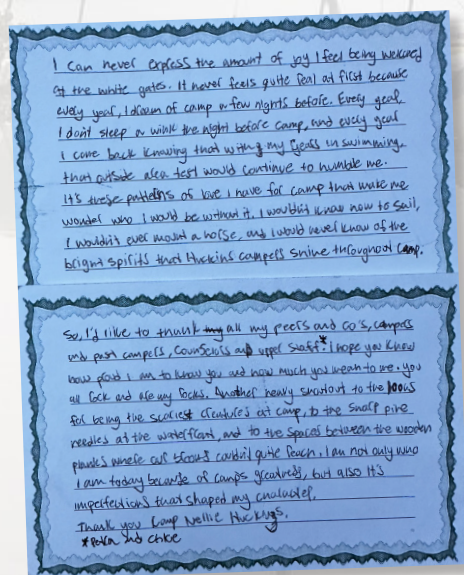 I can never express the amount of joy I feel being welcomed
at the white gates. It never feels quite real at first because
every year, I dream of camp a few nights before. Every year,
I don't sleep a wink the night before camp, and every year
I come back knowing that with my years in swimming,
that outside area test would continue to humble me.
It's these patterns of love I have for camp that make me
wonder who I would be without it. I wouldn't know how to sail,
I wouldn't ever mount a horse, and I would never know of the
bright spirits that Huckins campers shine throughout camp.
So, I'd like to thank all my peers and co's, campers
and past campers, counselors and upper staff.* I hope you know
how proud I am to know you and how much you mean to me. You
all rock and are my rocks. Another heavy shoutout to the loons
for being the scariest creatures at camp, to the sharp pine
needles at the waterfront, and to the spaces between the wooden
planks where our brooms couldn't quite reach. I am not only who
I am today because of camps greatness, but also it's
imperfections that shaped my character.
Thank you Camp Nellie Huckins.
* and Chloe